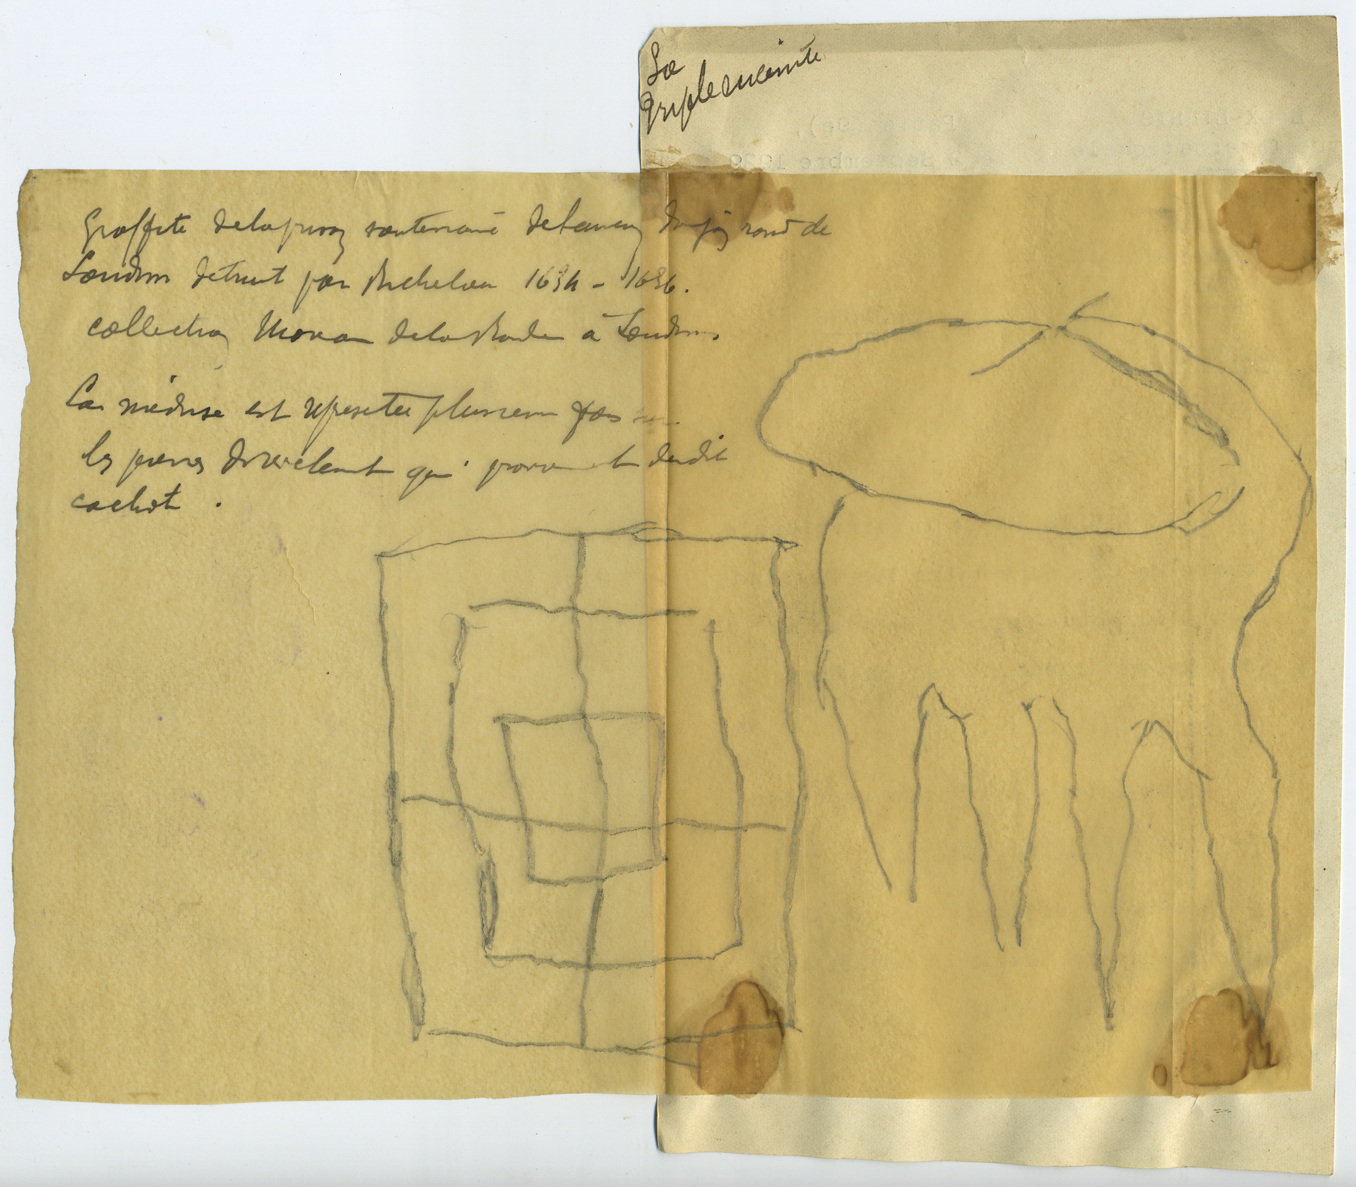 La
triple enceinte
Graffite de la prison souterraine de l'ancien donjon rond de
Loudun détruit par Richelieu 1634 - 1636.
collection Moreau de la Ronde à Loudun.
La méduse est representée plusieurs fois sur
les pierres de revetement qui proviennent dudit
cachot .
septembre 1939